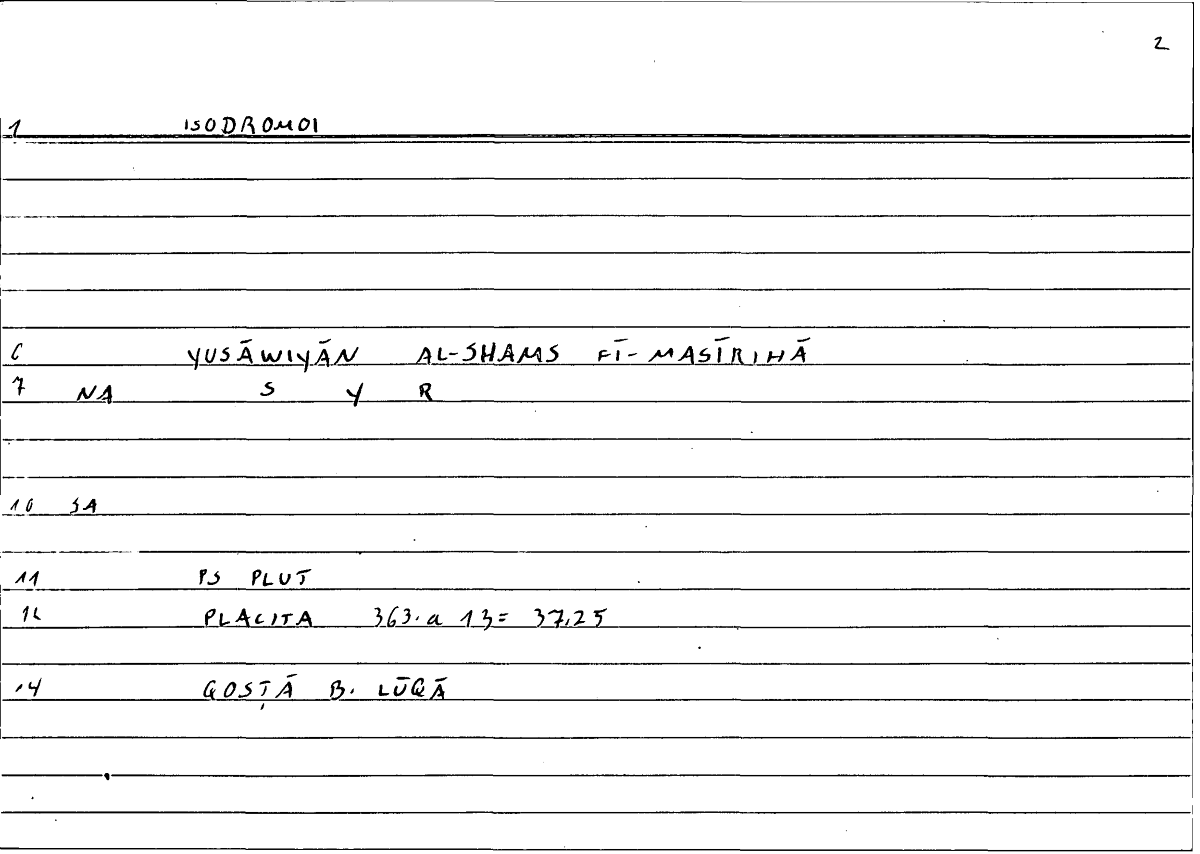 2
1 ISODROMOI
6 YUSĀWIYĀN AL-SHAMS FĪ-MASĪRIHĀ
7 NA S Y R
10 SA
11 PS PLUT
12 PLACITA 363.a 13= 37.25
14 QOSṬĀ B. LŪQĀ